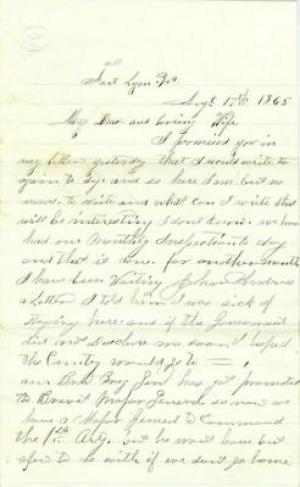 Fort Lyon Va.
Sept 17th 1865
My Dear and loving Wife
I promised you in
my letter yesterday that I would write to
again to day. and so here I am. but no
news. to write and what can I write that
will be interesting I dont know. we have
had our Monthly Inspection to day
and that is done for another month
I have been Writing John Andrews
a Letter I told him I was sick of
staying here. and if the Government
did not discharge me soon I hoped
the Country would go to
our Brig Gen has got promoted
to Brevet Major General so now we
have a Major General to Command
the 1st Arty. but he wont have but
to do with if we dont go home